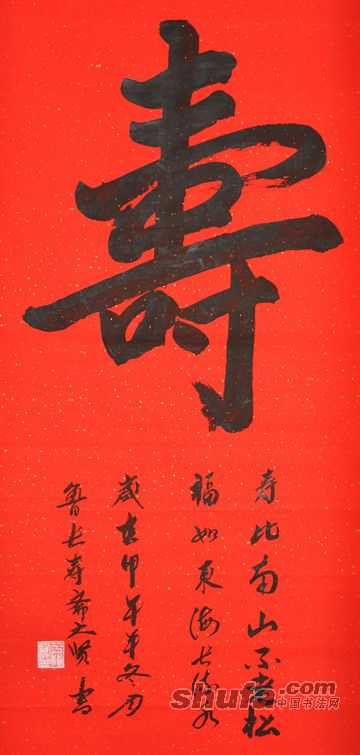 壽
寿比南山不老松
福如東海长流水
歲在甲午年孟冬月
鲁长寿斋大贤书
shufa.com
中国书法网